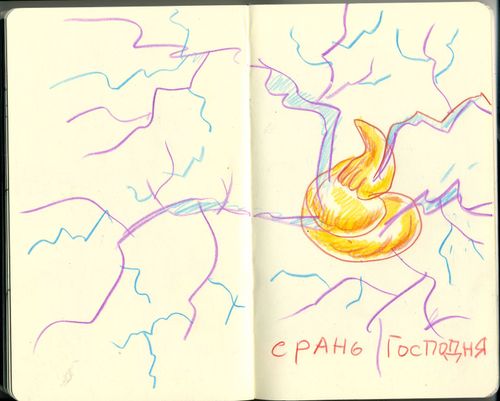 СРАНЬ ГОСПОДНЯ